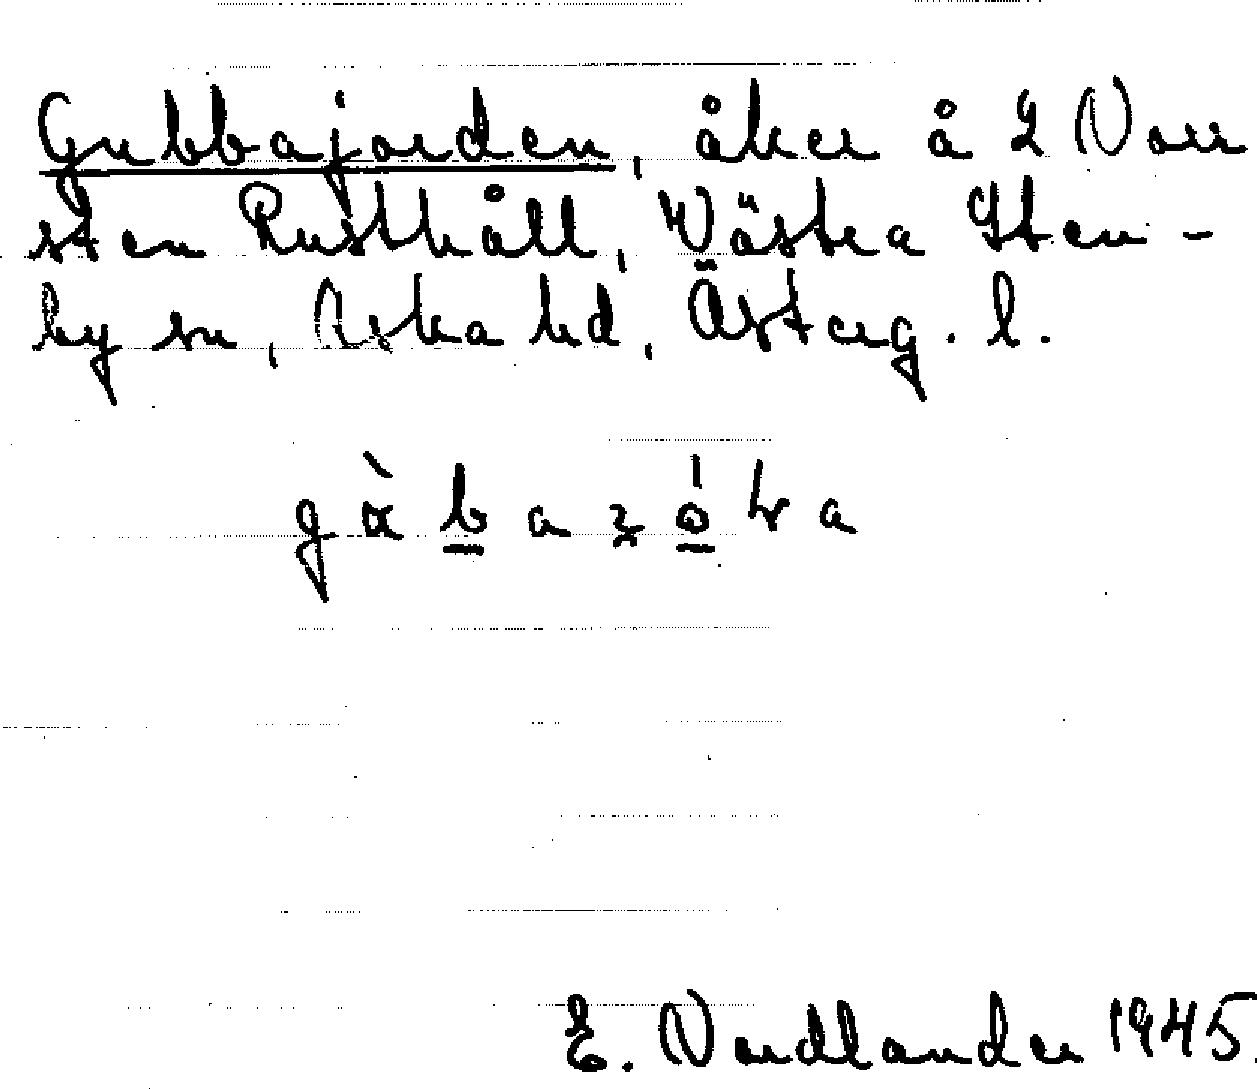 Gubbajorden, åker å 2 Norr
sten Rusthåll, Västra Sten-
by sn, Aska hd, Österg. l.
E. Nordlander 1945.